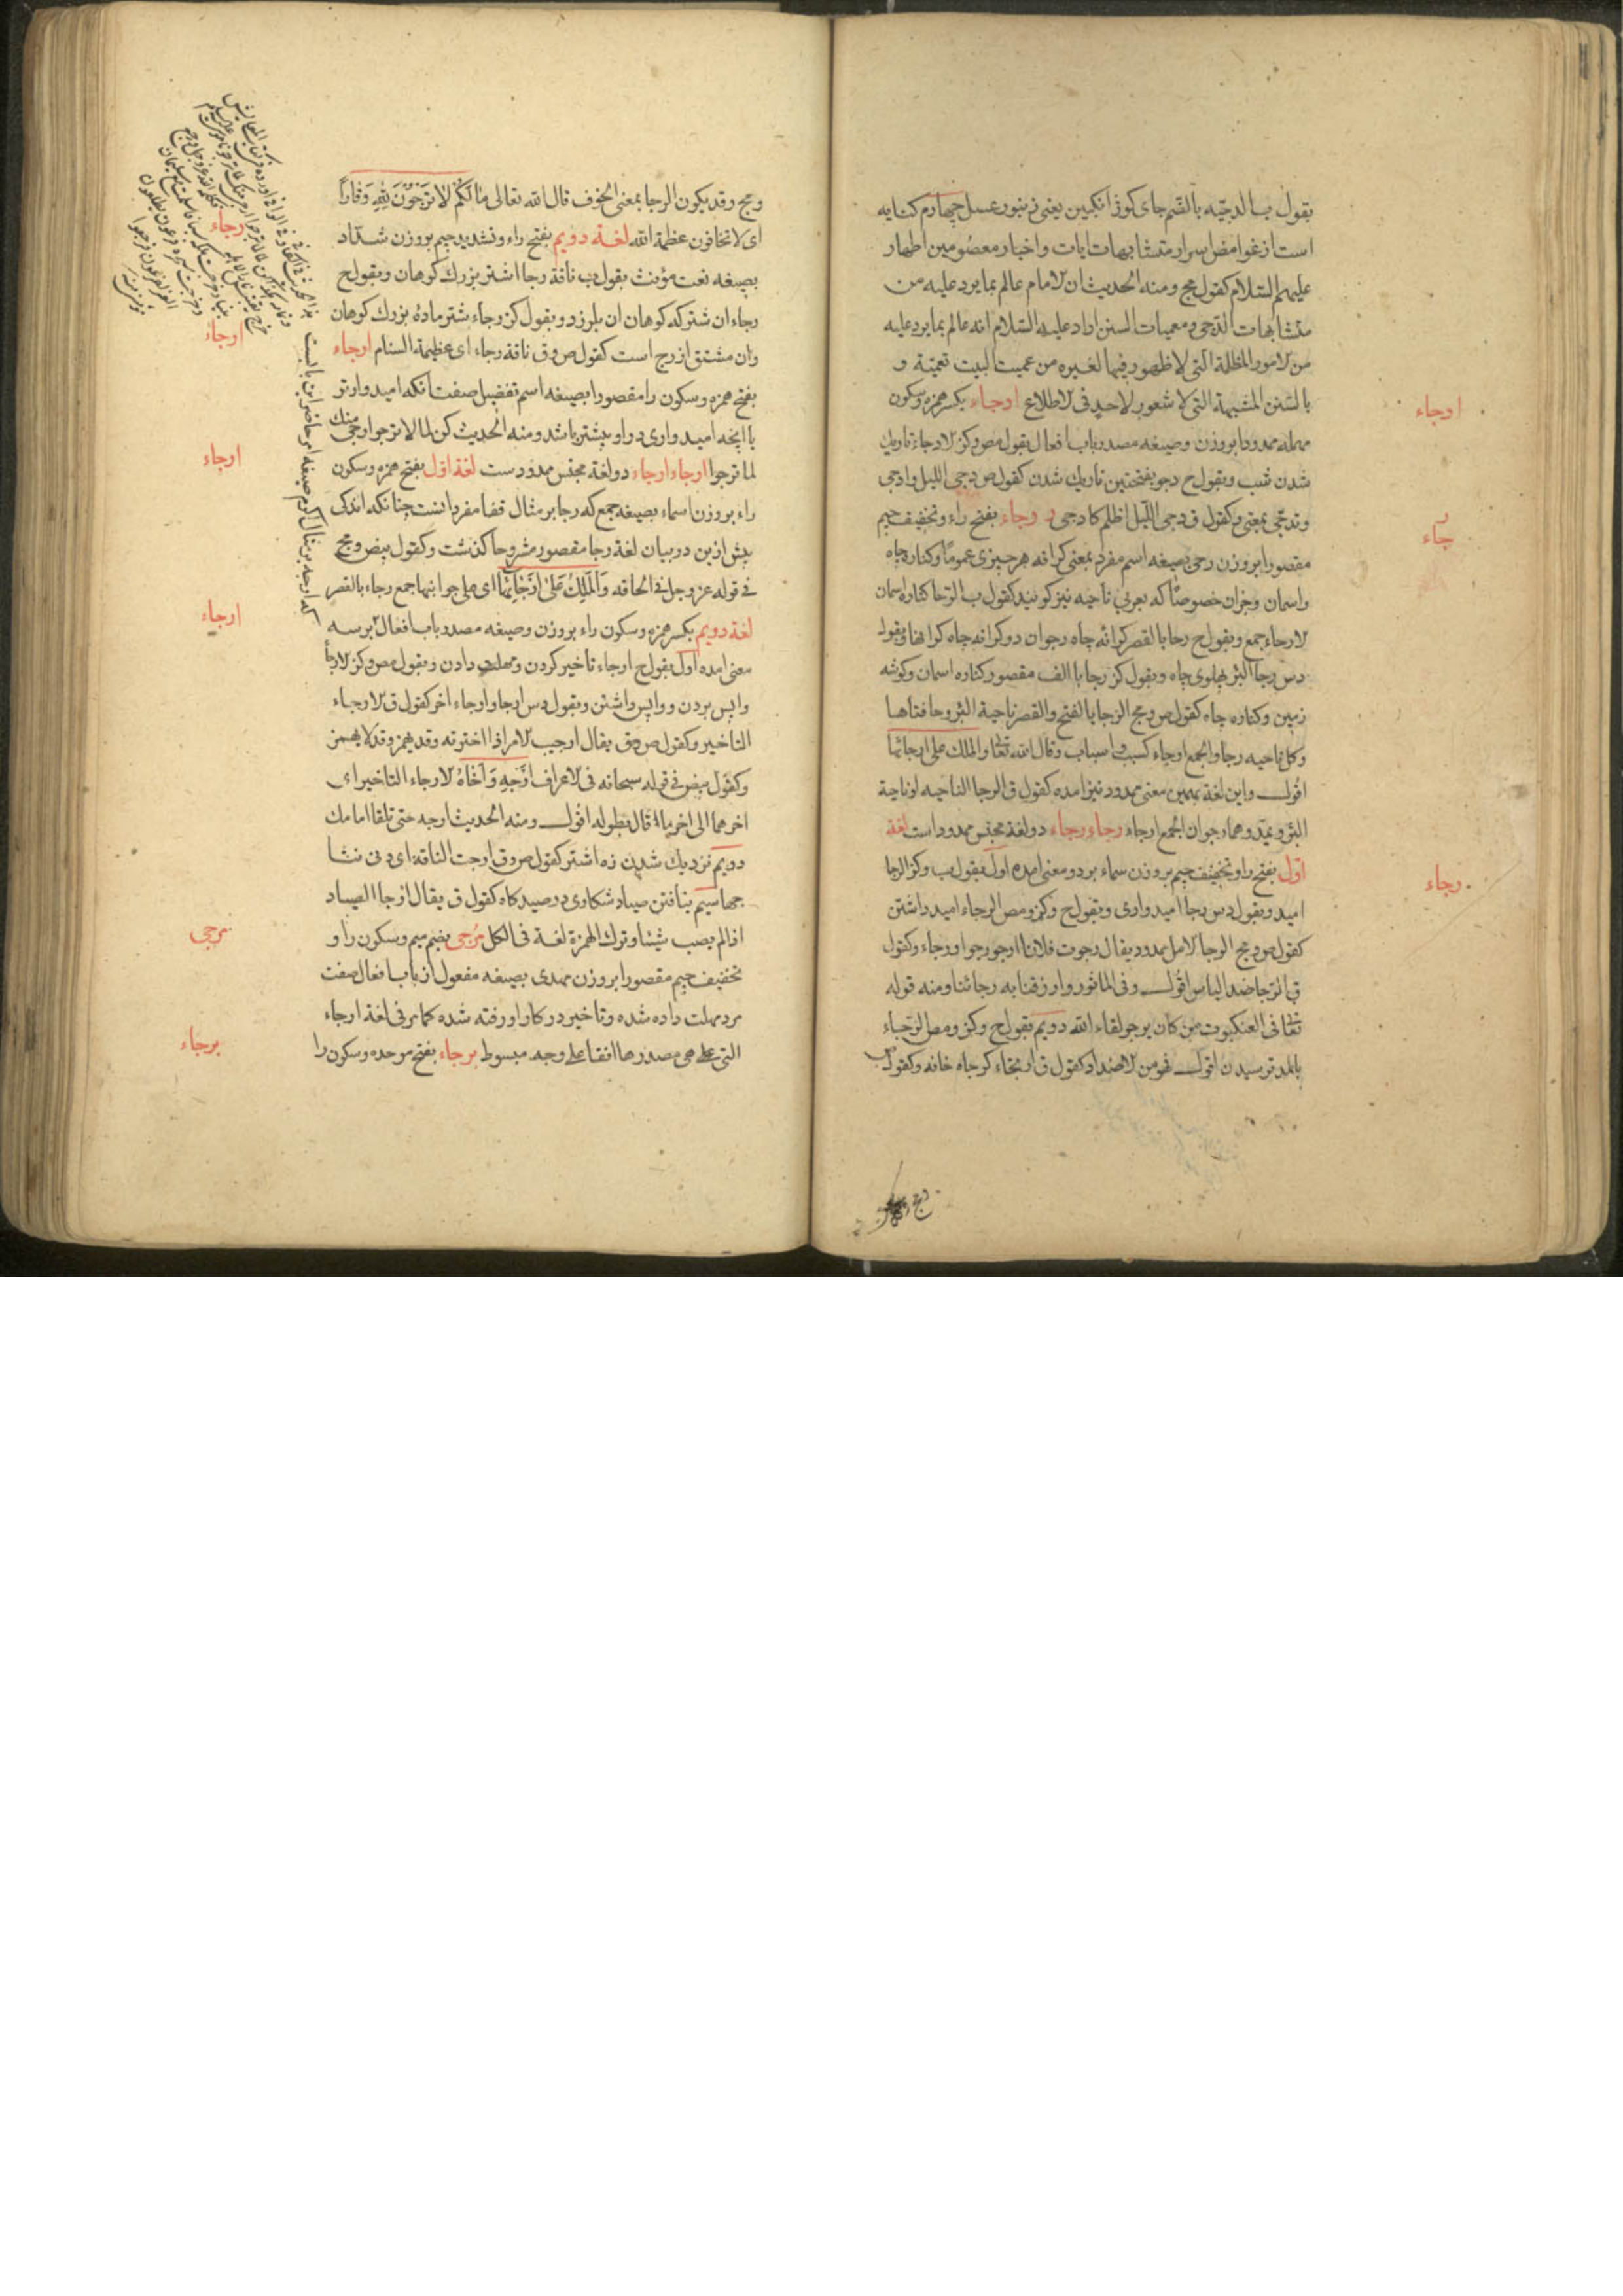 بقول ب الدجیه بالضم جای کوز انکبین یعنی زنبور عسل چهارم کنایه
است از غوامض اسرار متشابهات ایات و اخبار معصومین اطهار
علیهم السلام کقول مج ومنه الحدیث ان الامام عالم بما یرد علیه من
متشابهات الدجی و معمیات السنن اراد علیه السلام انه عالم بما یرد علیه
من الامور المظلمة التی لا ظهور فیها لغیره من عمیت البیت تعمیة و
بالسنن المشبهة التی لا شعور لاحد فی الاطلاع ادجاء بکسر همزه وسکون
مهمله ممدودا بروزن وصیغه مصدر باب افعال بقول ص و کز الادجاء تاریک
شدن شب وبقول ح دجو بفتحتین تاریک شدن کقول ص دجی اللیل وادجی
وتدجی بمعنی وکقول ق دجی اللیل اظلم کادجی رجاء بفتح راء وتخفیف جیم
مقصورا بروزن رحی بصیغه اسم مفرد بمعنی کرانه هر چیزی عموما وکناره چاه
واسمان وجزان خصوصا که بعربی ناحیه نیز کویند کقول ب الرجا کناره اسمان
الارجاء جمع وبقول ح رجا بالقصر کرانه چاه رجوان دو کرانه چاه کرانها وبقول
دس رجا البئر پهلوی چاه وبقول کز رجا با الف مقصور کناره اسمان وکوشه
زمین وکناره چاه کقول ص ومج الرجا بالفتح والقصر ناحیة البئر وحافتاها
وکل ناحیه رجا والجمع ارجاء کسبب و اسباب وقال الله تعالی والملک علی ارجائها
اقول واین لغة بهمین معنی ممدود نیز امده کقول ق الرجا الناحیه او ناحیة
البئر ویمد وهما رجوان الجمع ارجاء رجاء رجاء دو لغة مجنس ممدود است لغة
اول بفتح را وتخفیف جیم بروزن سماء بر دو معنی امده اول بقول ب وکز الرجا
امید وبقول دس رجا امیدواری وبقول ح وکز ومص الرجاء امید داشتن
کقول ص ومج الرجا الامل ممدود یقال رجوت فلانا ارجو رجوا ورجاء وکقول
ق الرجا ضد الیاس اقول وفی الماثور وارزقنا به رجائنا ومنه قوله
تعالی فی العنکبوت من کان یرجو لقاء الله دویم بقول ح وکز ومص الرجاء
بالمد ترسیدن اقول فهو من الاضداد کقول ق ارتجاء کرجاه خافه وکقول
ادجاء
رجاء
رجاء
ومج وقد یکون الرجا بمعنی الخوف قال الله تعالی مَا لَکُمْ لا تَرْجُوْنَ لِلّهِ وَقَاراً
ای لا تخافون عظمة الله لغة دویم بفتح راء وتشدید جیم بروزن شداد
بصیغه نعت مؤنث بقول ب ناقة رجا اشتر بزرک کوهان وبقول ح
رجاء ان شتر که کوهان ان بلرزد وبقول کز رجاء شتر ماده بزرک کوهان
وان مشتق از رج است کقول ص وق ناقة رجاء ای عظیمة السنام ارجاء
بفتح همزه وسکون را مقصورا بصیغه اسم تفضیل صفت انکه امیدوارتر
یا انچه امیدواری در او بیشتر باشد ومنه الحدیث کن لما لا ترجوا ارجی منک
لما ترجوا ارجاء ارجاء دو لغة مجنس ممدودست لغة اول بفتح همزه وسکون
راء بروزن اسماء بصیغه جمع که رجا بر مثال قفا مفرد انست چنانکه اندکی
پیش ازین در بیان لغة رجا مقصور مشروحا کذشت وکقول بیض ومج
فی قوله عز وجل فی الحاقه وَالْمَلِکُ عَلیٰ اَرْجَائِهَا ای علی جوانبها جمع رجاء بالقصر
لغة دویم بکسر همزه وسکون راء بروزن وصیغه مصدر باب افعال بر سه
معنی امده اول بقول ح ارجاء تاخیر کردن ومهلت دادن وبقول مص وکز الارجا
واپس بردن و واپس داشتن وبقول دس ارجا وارجاء اخر کقول ق الارجاء
التاخیر وکقول ص وق یقال ارجیت الامر اذا اخرته وقد یهمز وقد لا یهمز
وکقول بیض فی قوله سبحانه فی الاعراف اَرْجِهِ وَاَخَاهُ الارجاء التاخیر ای
اخرهما الی اخر ما قال بطوله اقول ومنه الحدیث ارجه حتی تلقا امامک
دویم نزدیک شدن زه اشتر کقول ص وق ارجت الناقة ای دنی نتا
جها سیم نیافتن صیاد شکاری در صیدکاه کقول ق یقال ارجا الصیاد
اذا لم یصب شیئا وترک الهمزة لغة فی الکل مرجی بضم میم وسکون را و
تخفیف جیم مقصورا بروزن مهدی بصیغه مفعول از باب افعال صفت
مرد مهلت داده شده وتاخیر در کار او رفته شده کما مر فی لغة ارجاء
التی هی مصدرها انفا علی وجه مبسوط برجاء بفتح موحده وسکون را
رجاء
ارجاء
ارجاء
ارجاء
مرجی
برجاء